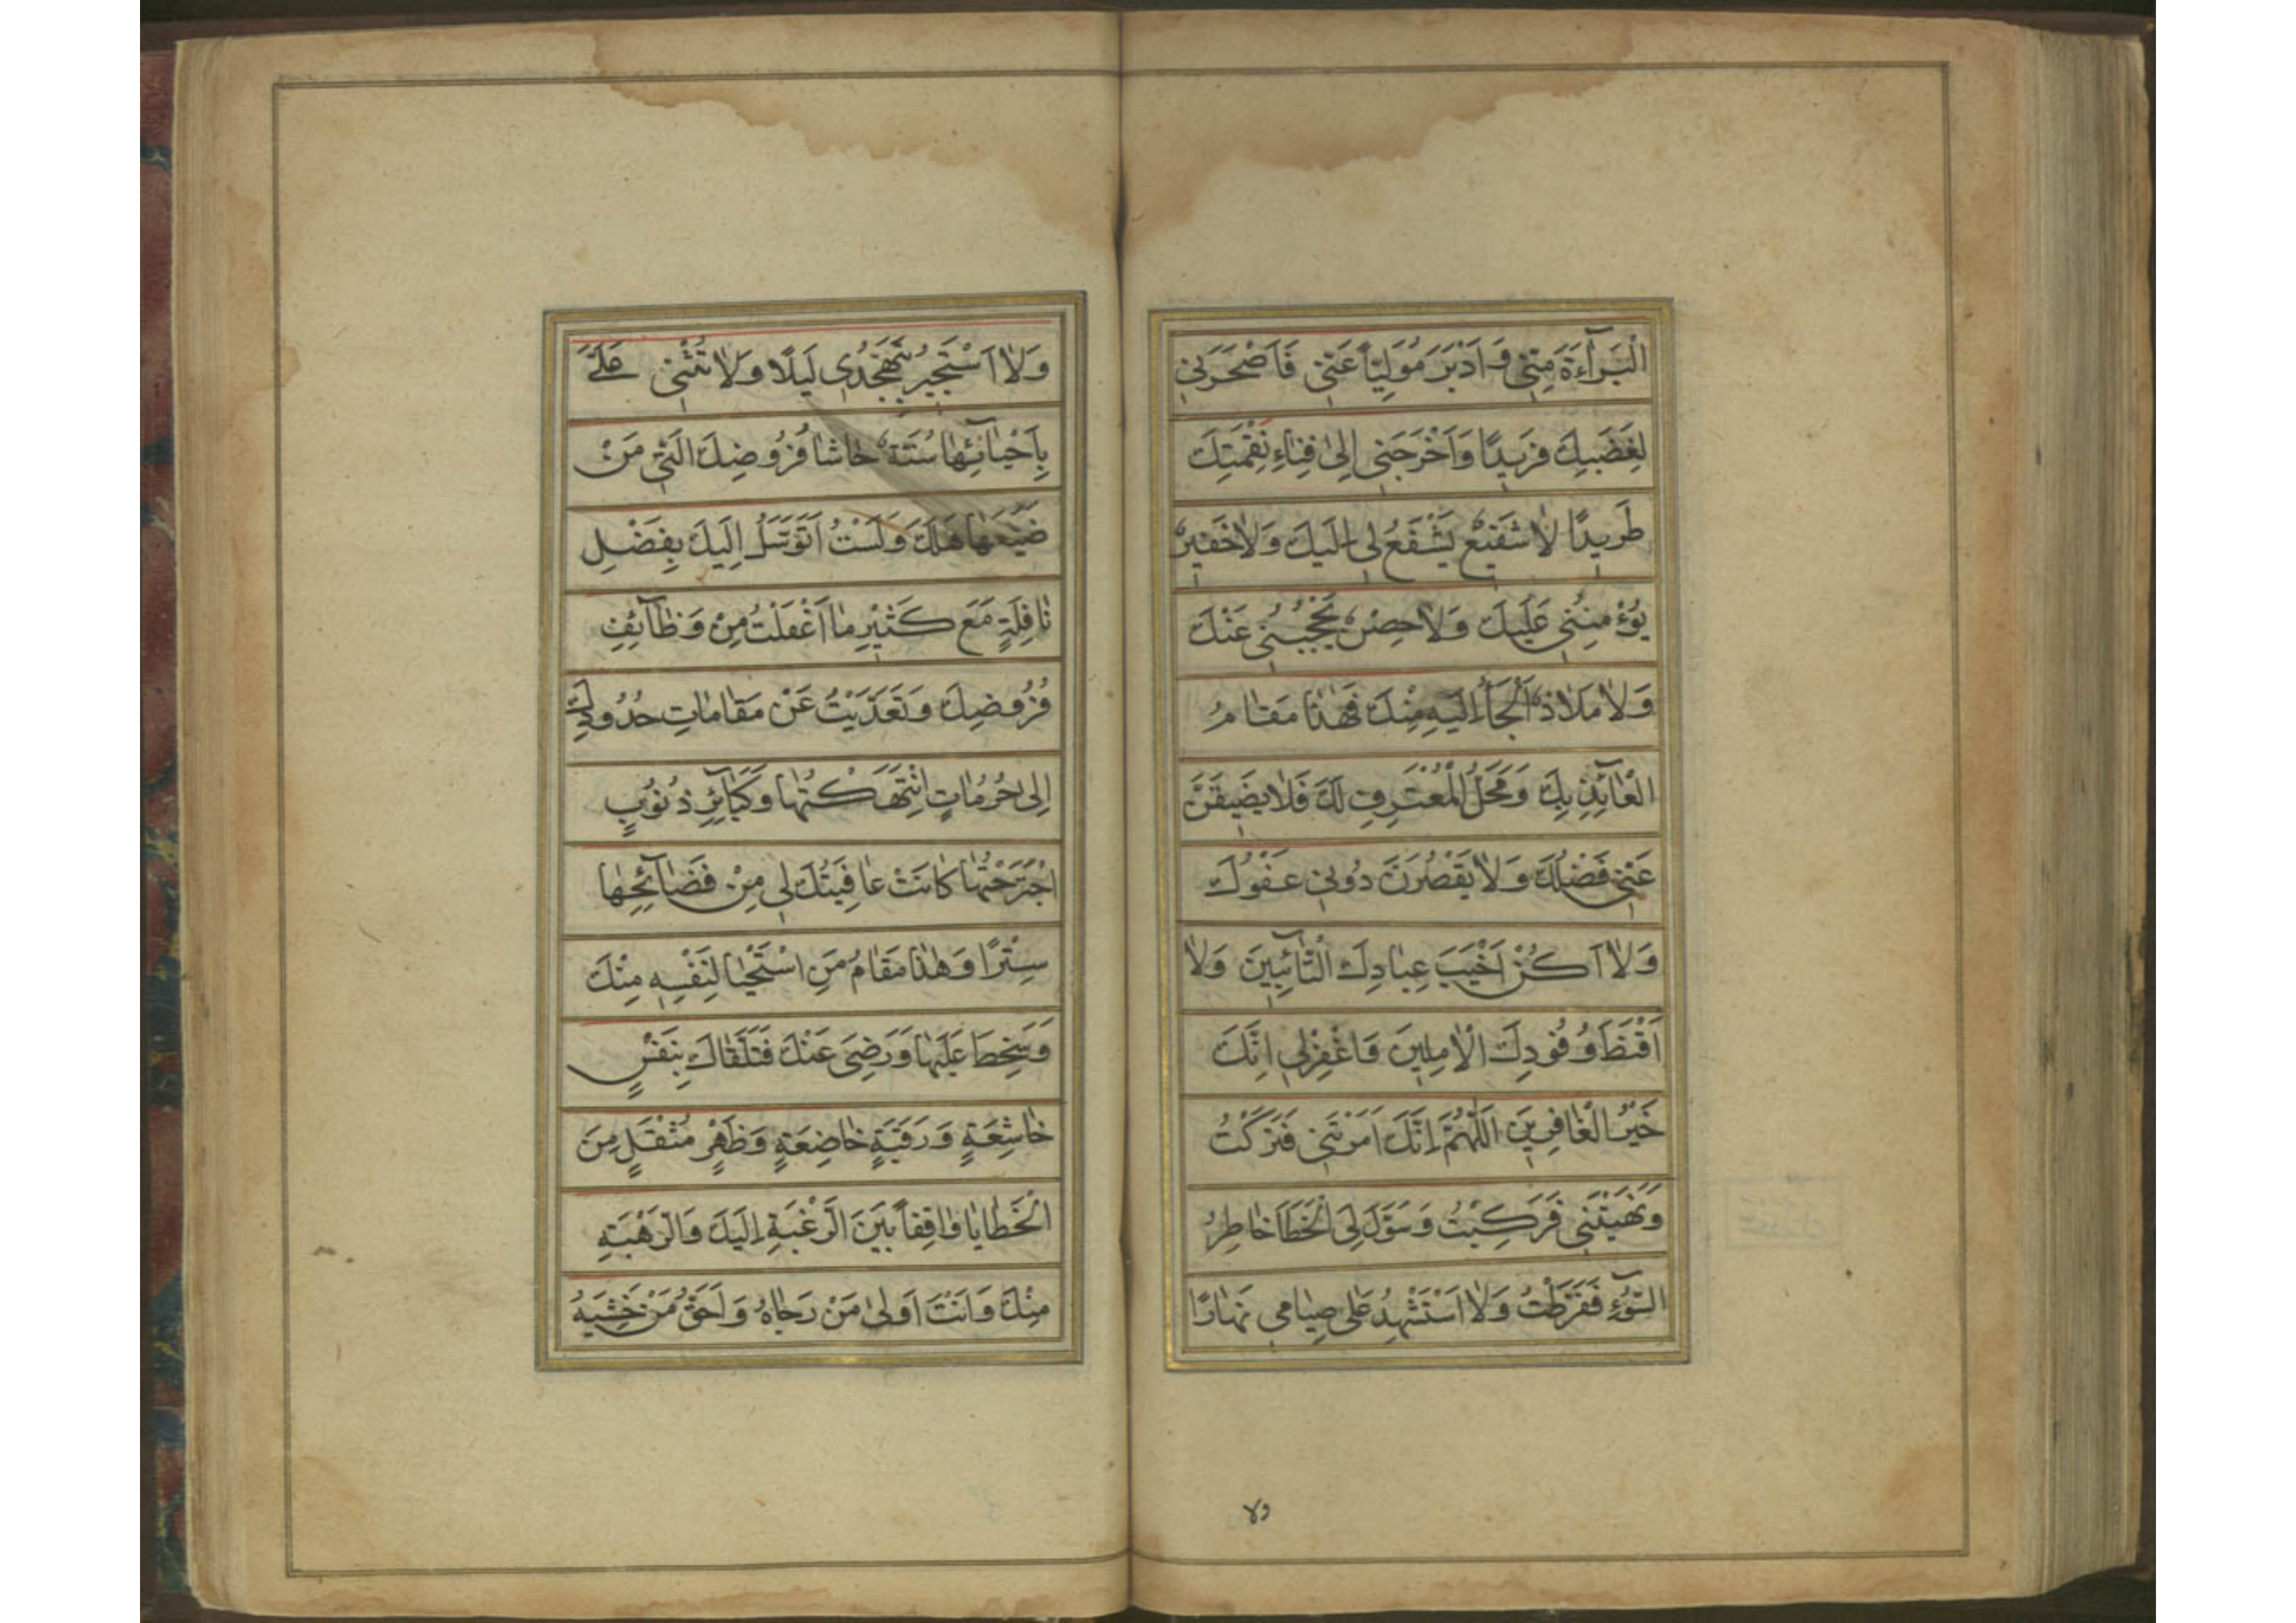 الْبَرَآءَةَ مِنّى وَاَدْبَرَ مُوَلِّيًا عَنّى فَاَصْحَرَنى
لِغَضَبِكَ فَريدًا وَاَخْرَجَنى اِلىٰ فِناءِ نَقِمَتِكَ
طَريدًا لا شَفيعٌ يَشْفَعُ لى اِلَيْكَ وَلا خَفيرٌ
يُؤْمِنُنى عَلَيْكَ وَلا حِصْنٌ يَحْجُبُنى عَنْكَ
وَلا مَلاذٌ اَلْجَأُ اِلَيْهِ مِنْكَ فَهٰذا مَقامُ
الْعآئِذِ بِكَ وَمَحَلُّ الْمُعْتَرِفِ لَكَ فَلا يَضيقَنَّ
عَنّى فَضْلُكَ وَلا يَقْصُرَنَّ دُونى عَفْوُكَ
وَلا اَكُنْ اَخْيَبَ عِبادِكَ الْتّآئِبينَ وَلا
اَقْنَطَ وُفُودِكَ الْاٰمِلينَ وَاغْفِرْلى اِنَّكَ
خَيْرُ الْغافِرينَ اَللّٰهُمَّ اِنَّكَ اَمَرْتَنى فَتَرَكْتُ
وَنَهَيْتَنى فَرَكِبْتُ وَسَوَّلَ لِىَ الْخَطَآءَ خاطِرُ
السُّوٓءِ فَفَرَّطْتُ وَلا اَسْتَشْهِدُ عَلى صِيامى نَهارًا
ولا
وَلا اَسْتَجيرُ بِتَهَجُّدى لَيْلًا وَلا تُثْنى عَلَىَّ
بِاَحْيآئِها سُنَّةٌ حاشا فُرُوضِكَ الَّتى مَنْ
ضَيَّعَها هَلَكَ وَلَسْتُ اَتَوَسَّلُ اِلَيْكَ بِفَضْلِ
نافِلَةٍ مَعَ كَثيرِ ما اَغْفَلْتُ مِنْ وَظآئِفِ
فُرُوضِكَ وَتَعَدَّيْتُ عَنْ مَقاماتِ حُدُودِكَ
اِلى حُرُماتٍ انْتَهَكْتُها وَكَبآئِرِ ذُنُوبٍ
اجْتَرَحْتُها كانَتْ عافِيَتُكَ لى مِنْ فَضآئِحِها
سِتْرًا وَهٰذا مَقامُ مَنِ اسْتَحْيا لِنَفْسِهِ مِنْكَ
وَسَخِطَ عَلَيْها وَرَضِىَ عَنْكَ فَتَلَقّاكَ بِنَفْسٍ
خاشِعَةٍ وَرَقَبَةٍ خاضِعَةٍ وَظَهْرٍ مُثْقَلٍ مِنَ
الْخَطايا واقِفًا بَيْنَ الرَّغْبَةِ اِلَيْكَ وَالرَّهْبَةِ
مِنْكَ وَاَنْتَ اَوْلىٰ مَنْ رَجاهُ وَاَحَقُّ مَنْ خَشِيَهُ